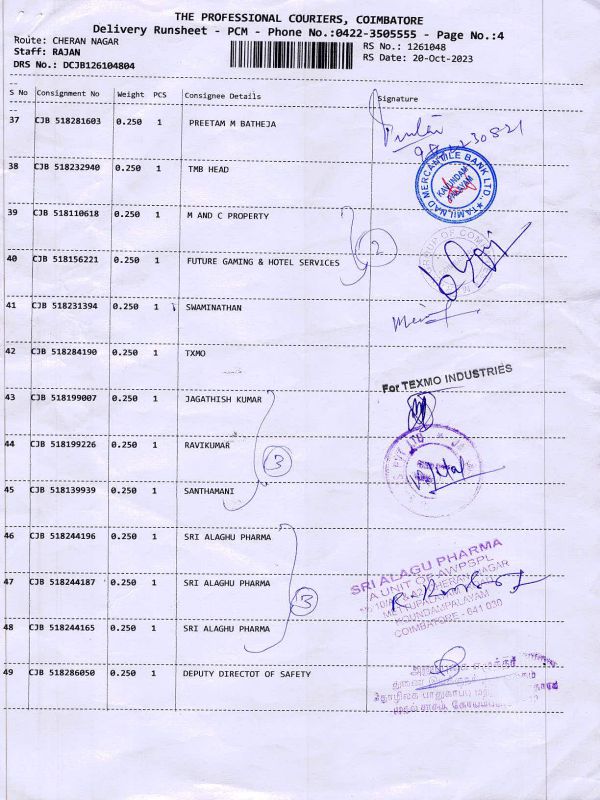 THE PROFESSIONAL COURIERS, COIMBATORE
Delivery Runsheet - PCM - Phone No.:0422-3505555 - Page No.:4
Route: CHERAN NAGAR
RS No.: 1261048
Staff: RAJAN
RS Date: 20-Oct-2023
DRS No.: DCJB126104804
S No Consignment No Weight PCS Consignee Details Signature
37 CJB 518281603 0.250 1 PREETAM M BATHEJA
38 CJB 518232940 0.250 1 TMB HEAD
TAMILNAD MERCANTILE BANK LTD.
KAVUNDAM PALAYAM
39 CJB 518110618 0.250 1 M AND C PROPERTY
2
40 CJB 518156221 0.250 1 FUTURE GAMING & HOTEL SERVICES
41 CJB 518231394 0.250 1 SWAMINATHAN
42 CJB 518284190 0.250 1 TXMO
For TEXMO INDUSTRIES
43 CJB 518199007 0.250 1 JAGATHISH KUMAR
44 CJB 518199226 0.250 1 RAVIKUMAR
3
PVT LTD
45 CJB 518139939 0.250 1 SANTHAMANI
46 CJB 518244196 0.250 1 SRI ALAGHU PHARMA
SRI ALAGU PHARMA
A UNIT OF AWPSPL
CHERAN NAGAR
47 CJB 518244187 0.250 1 SRI ALAGHU PHARMA
3
METTUPALAYAM
KOUNDAMPALAYAM
COIMBATORE - 641 030
48 CJB 518244165 0.250 1 SRI ALAGHU PHARMA
49 CJB 518286050 0.250 1 DEPUTY DIRECTOT OF SAFETY